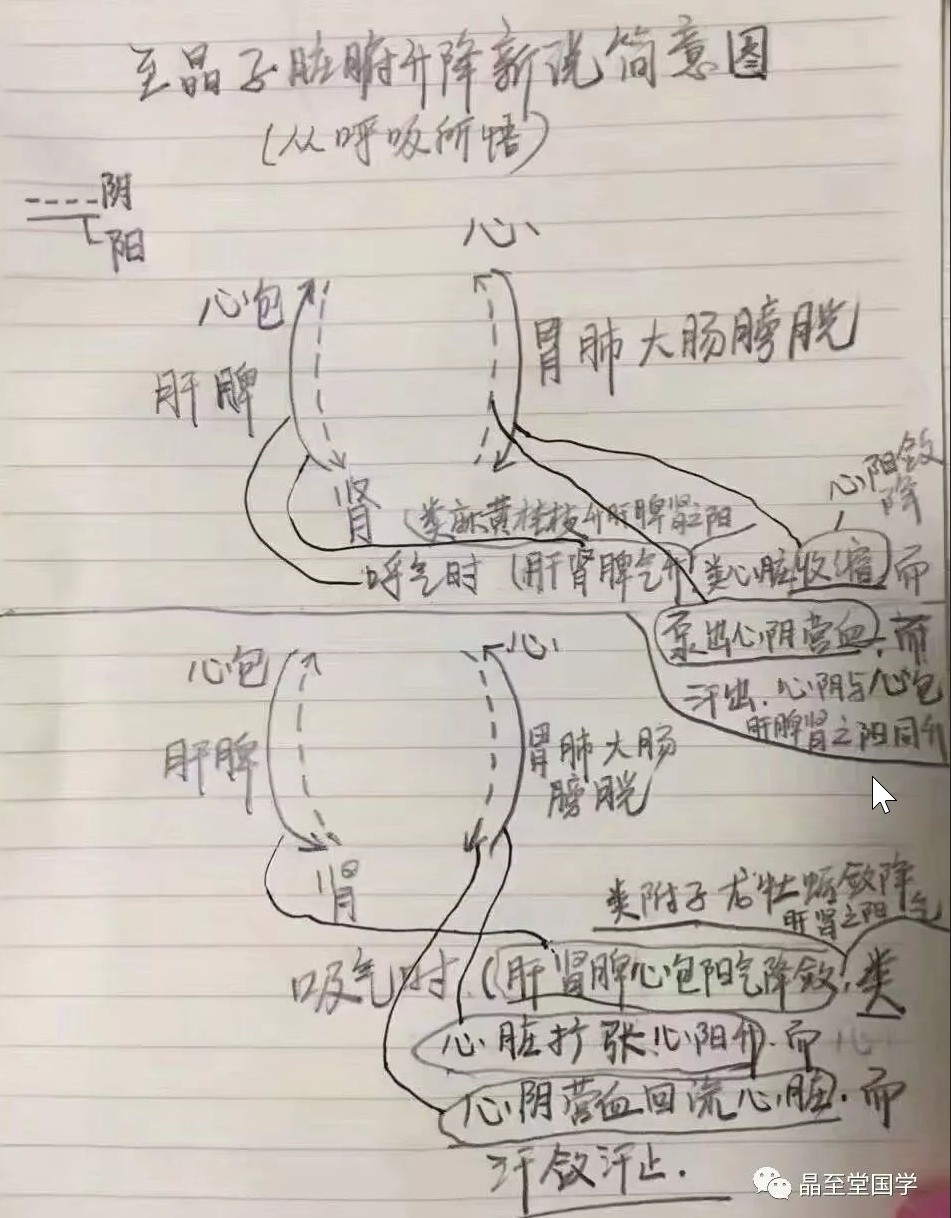 至晶子脏腑升降新说简意图
(从呼吸所悟)
阴
阳
心
心包
胃肺大肠膀胱
肝脾
肾
心阳敛
降
(类麻黄桂枝升肝脾肾之阳
呼气时(肝肾脾气升,类心脏收缩而
泵出心阴营血,而
汗出.心阴与心包
肝脾肾之阳同升
心包
心
肝脾
胃肺大肠
膀胱
肾
类附子龙牡蛎敛降
肝肾之阳气
吸气时.(肝肾脾心包阳气降敛,类
心脏扩张心阳升.而
心阴营血回流心脏.而
汗敛汗止.
晶至堂国学